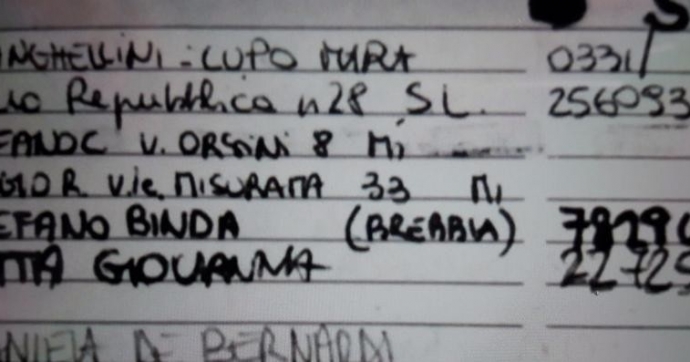 NGHELLINI - LUPO MURA 0331/
Repubblica n 28 S.L. 256093
V. ORSINI 8 Mi
V.le MISURATA 33 Mi
EFANO BINDA (BREBBIA)
GIOVANNA 22729
DE BERNARDI